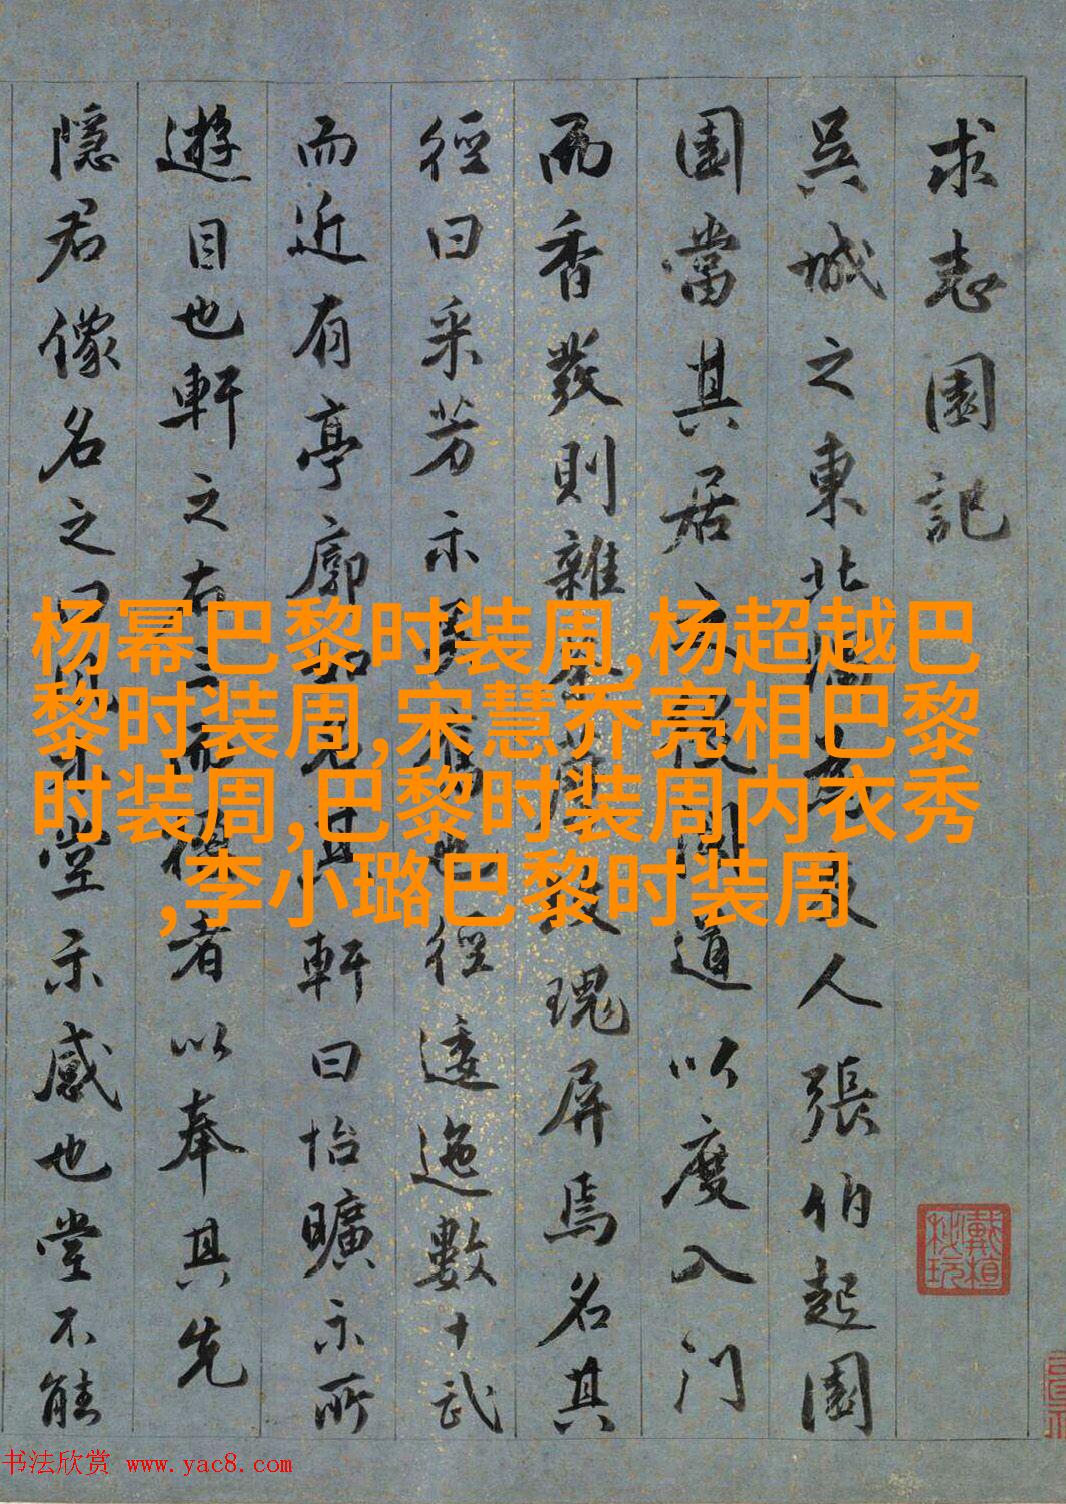 求志園記
吳城之東北人張伯起園
園當其居之後道以度入門
而香發則雜瑰屏焉名其
徑曰采芳示也徑逶迤數十武
而近有亭廓如見其軒曰怡曠示所
遊目也軒之右三而楹者以奉其先
隱君像名之曰堂示感也堂不能
杨幂巴黎时装周,杨超越巴
黎时装周,宋慧乔亮相巴黎
时装周,巴黎时装周内衣秀
,李小璐巴黎时装周
书法欣赏 www.yac8.com